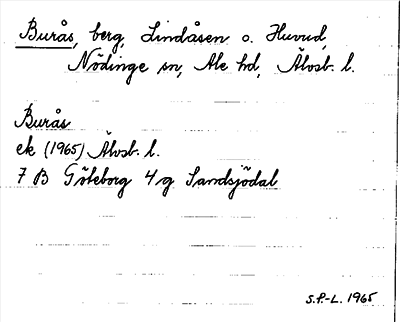 Burås, berg, Lindåsen o. Huvud,
Nödinge sn, Ale hd, Älvsb. l.
Burås
ek (1965) Älvsb. l.
7 B Göteborg 4 g Sandsjödal
S.P.-L. 1965